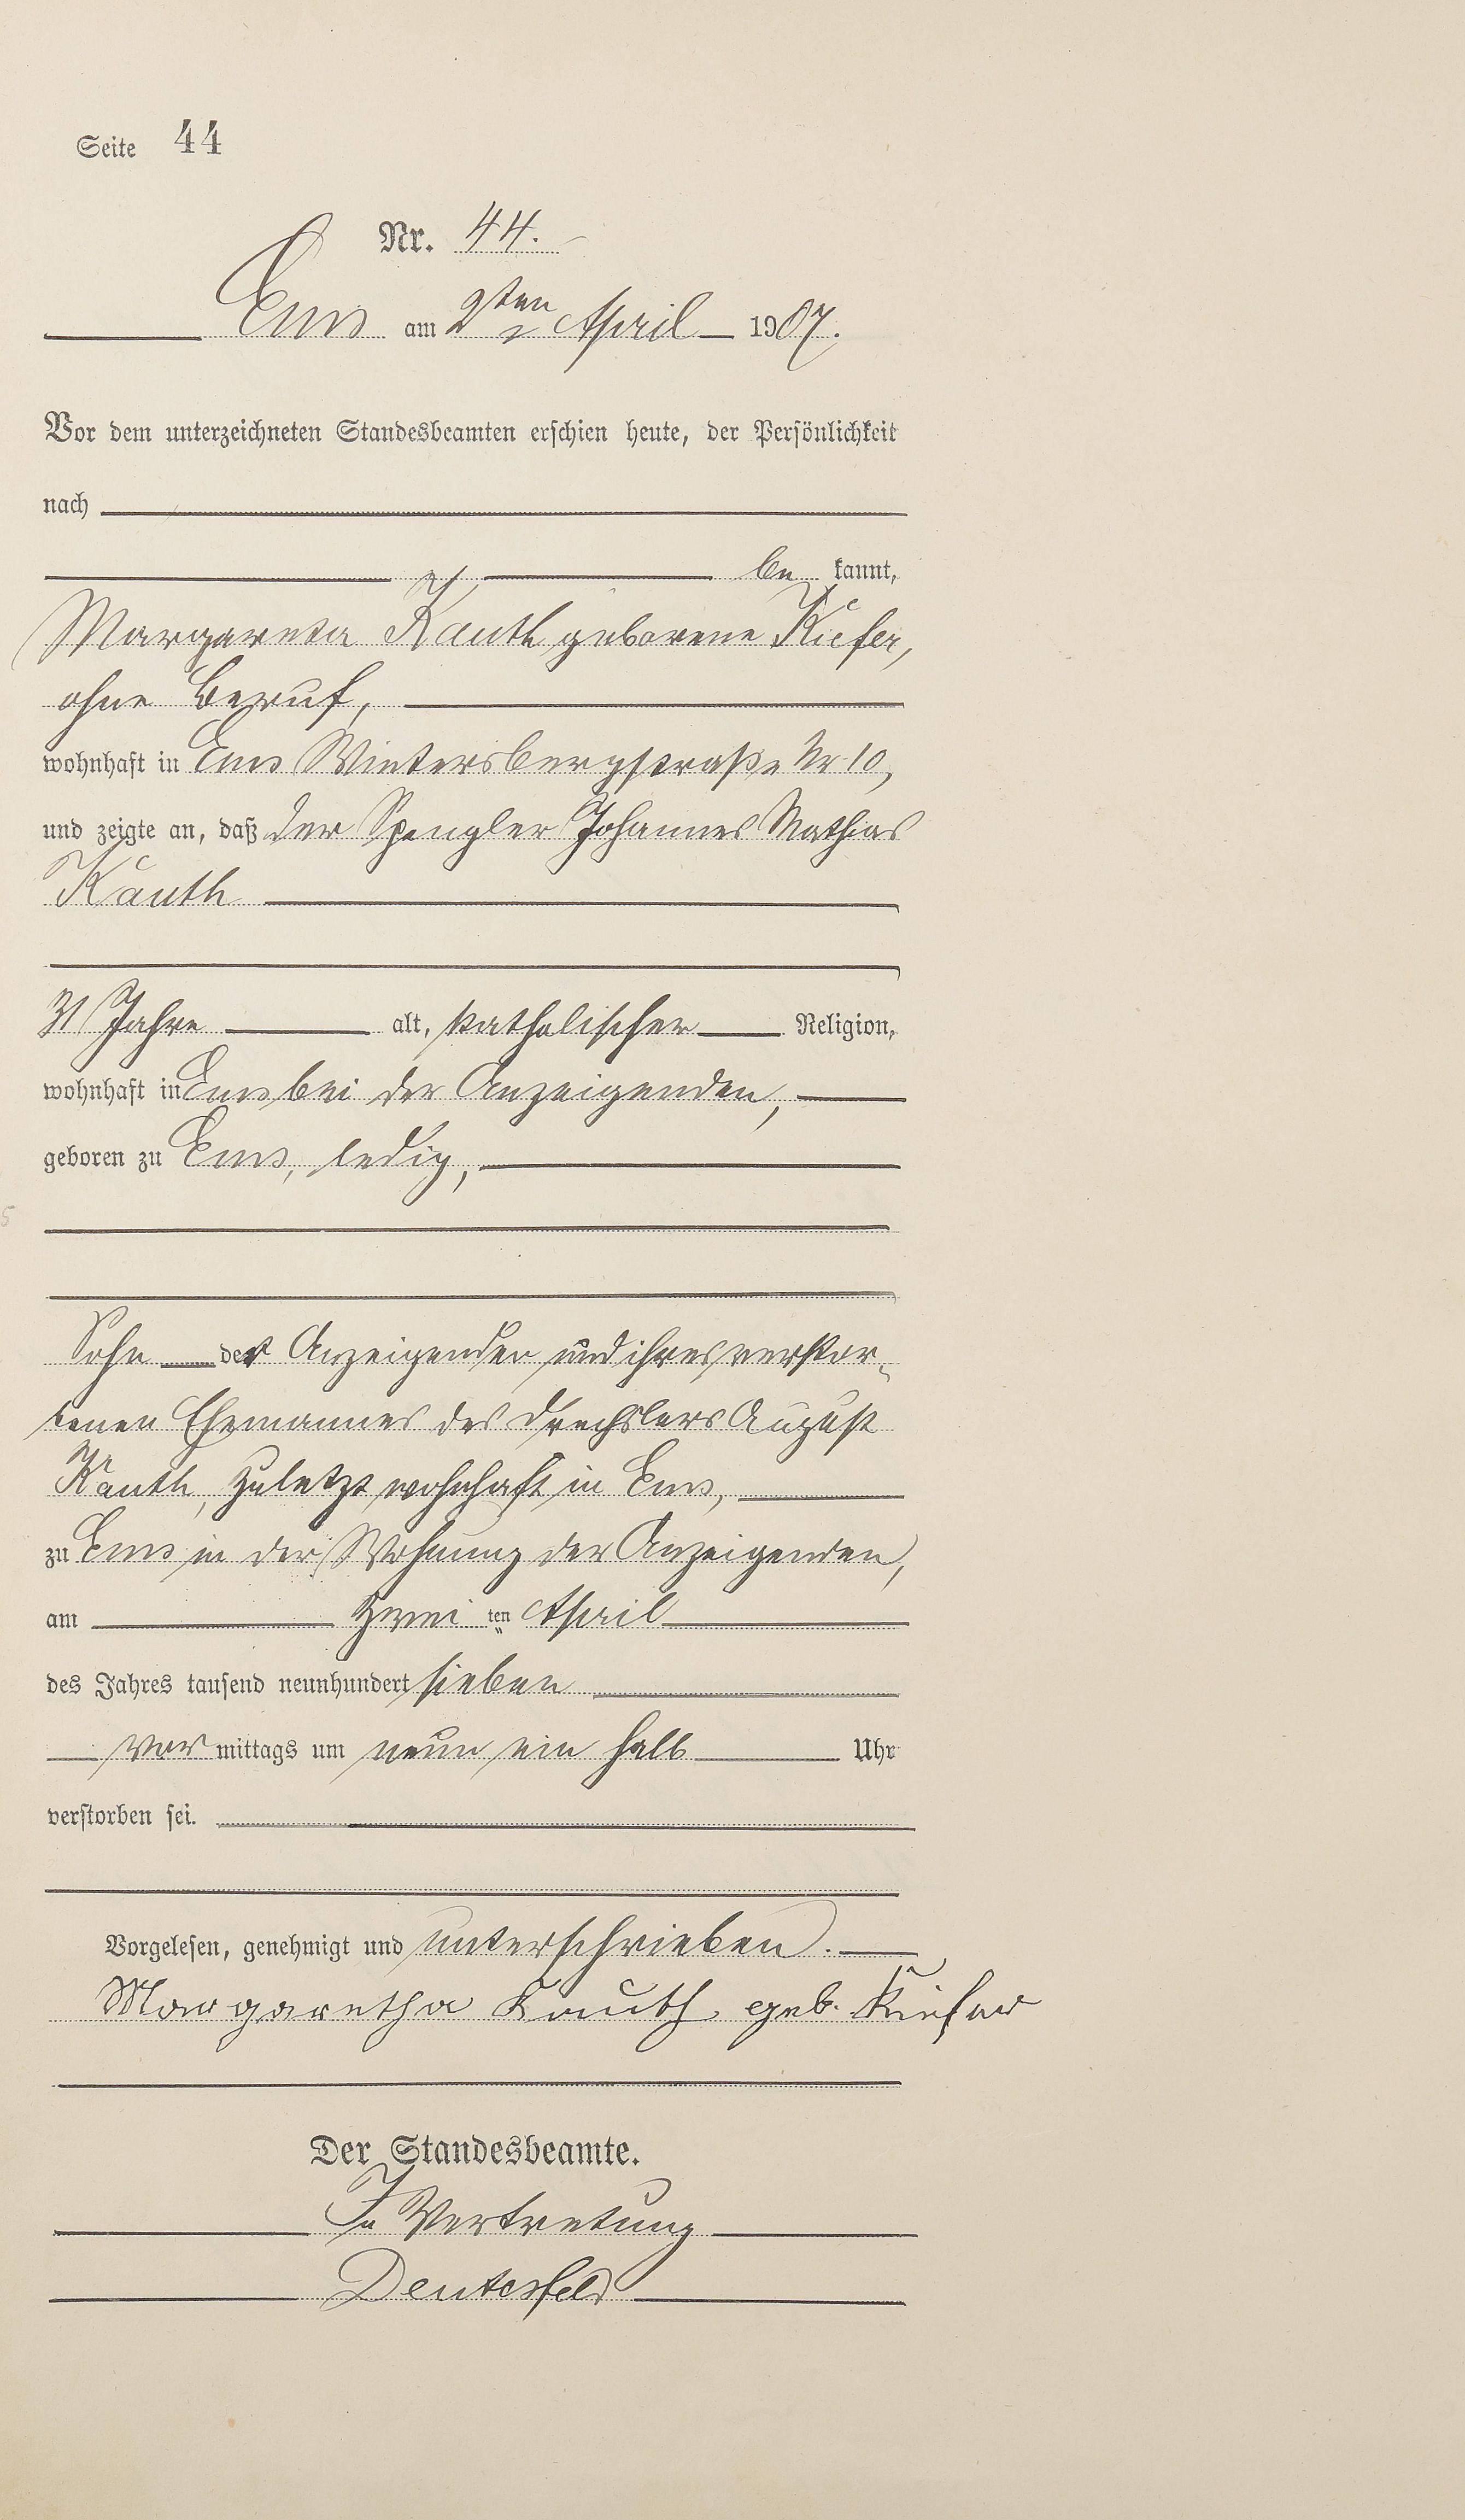 Seite 44
Nr. 44.
Ems am 2ten April 1907.
Vor dem unterzeichneten Standesbeamten erschien heute, der Persönlichkeit
nach
be kannt,
Margareta Kauth geborene Kiefer,
ohne Beruf,
wohnhaft in Ems Wintersbergstraße Nr 10,
und zeigte an, daß der Spengler Johannes Mathias
Kauth
31 Jahre alt, katholischer Religion,
wohnhaft in Ems bei der Anzeigenden,
geboren zu Ems, ledig,
Sohn der Anzeigenden und ihres verstor-
benen Ehemannes des Drechslers August
Kauth, zuletzt wohnhaft in Ems,
zu Ems in der Wohnung der Anzeigenden,
am zwei ten April
des Jahres tausend neunhundert sieben
vor mittags um neun ein halb Uhr
verstorben sei.
Vorgelesen, genehmigt und unterschrieben.
Margaretha Kauth geb. Kiefer
Der Standesbeamte.
In Vertretung
Deutesfeld